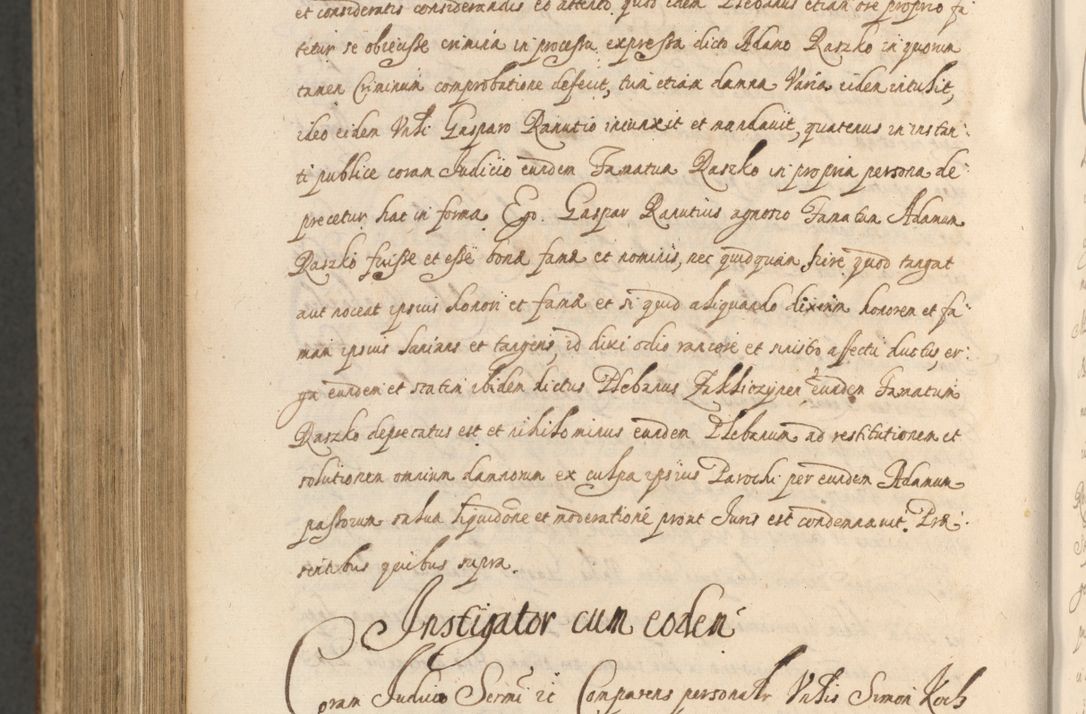 et consideratis considerandis eo attento quod idem Plebanus etiam ore proprio fa-
tetur se obiecisse crimina in processu expressa dicto Adamo Raszko in quorum
tamen Criminum comprobatione defecit, tum etiam damna Varia eidem intulit,
ideo eidem Vnbi Gasparo Ranutio iniunxit et mandauit, quatenus in instan-
ti publice coram Judicio eundem Famatum Raszko in propria persona de
precetur hac in forma. Ego Gaspar Ranutius agnosco Famatum Adamum
Raszko fuisse et esse bonæ famæ et nominis, nec quidquam scire quod tangat
aut noceat ipsius honori et famæ et si quid aliquando dixerim honorem et fa-
mam ipsius lædens et tangens, id dixi odio rancore et sinistro affectu ductus, er-
ga eundem et statim ibidem dictus Plebanus Zakliczynen eundem Famatum
Raszko deprecatus est et nihilominus eundem Plebanum ad restitutionem et
solutionem omnium damnorum ex culpa ipsius Parochi per eundem Adamum
passorum salua liquidõne et moderationé prout Juris est condemnauit. Præ-
sentibus quibus supra.
Instigator cum eodem
Coram Judicio Sermi ic Comparens personalr Vnbis Simon Koch